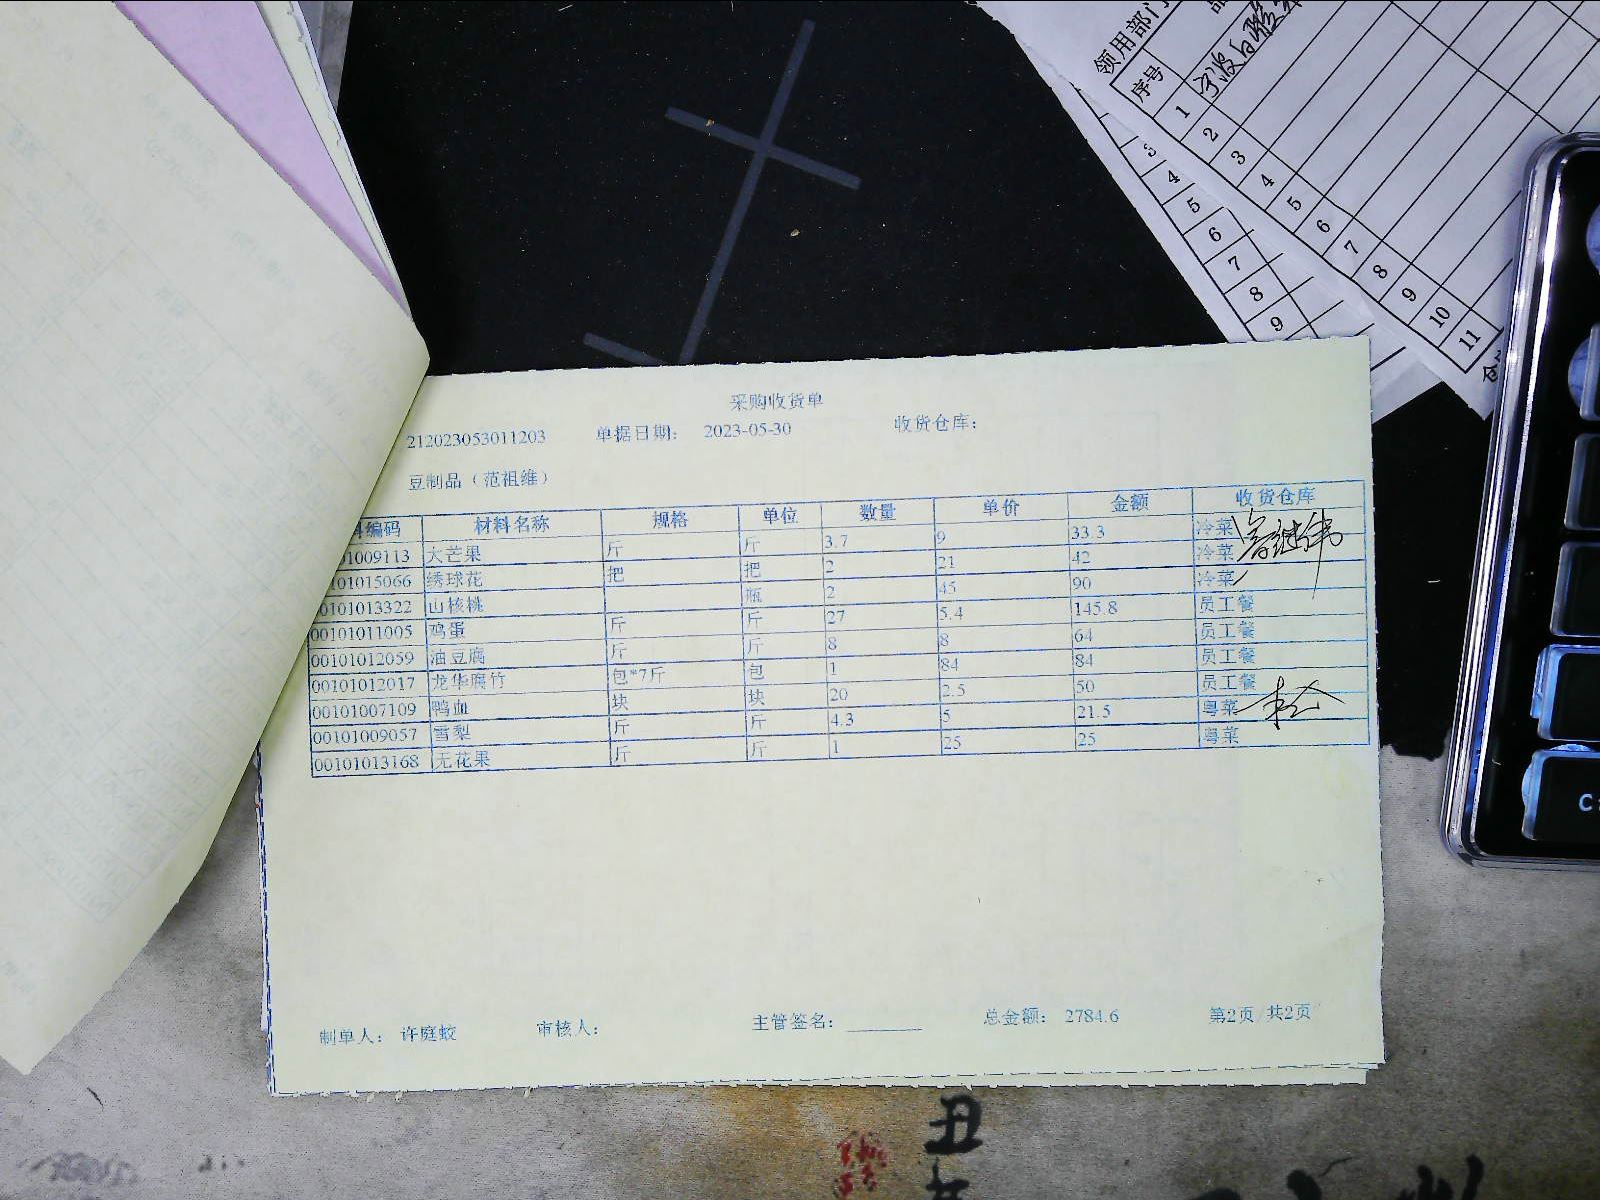 领用部门
序号
1
2
3
4
5
6
7
8
9
10
11
3
4
5
6
7
8
9
采购收货单
212023053011203 单据日期： 2023-05-30 收货仓库：
豆制品（范祖维）
料编码 材料名称 规格 单位 数量 单价 金额 收货仓库
01009113 大芒果 斤 斤 3.7 9 33.3 冷菜
101015066 绣球花 把 把 2 21 42 冷菜
0101013322 山核桃 瓶 2 45 90 冷菜
00101011005 鸡蛋 斤 斤 27 5.4 145.8 员工餐
00101012059 油豆腐 斤 斤 8 8 64 员工餐
00101012017 龙华腐竹 包*7斤 包 1 84 84 员工餐
00101007109 鸭血 块 块 20 2.5 50 员工餐
00101009057 雪梨 斤 斤 4.3 5 21.5 粤菜
00101013168 无花果 斤 斤 1 25 25 粤菜
制单人： 许庭蛟 审核人： 主管签名：______ 总金额： 2784.6 第2页 共2页
丑